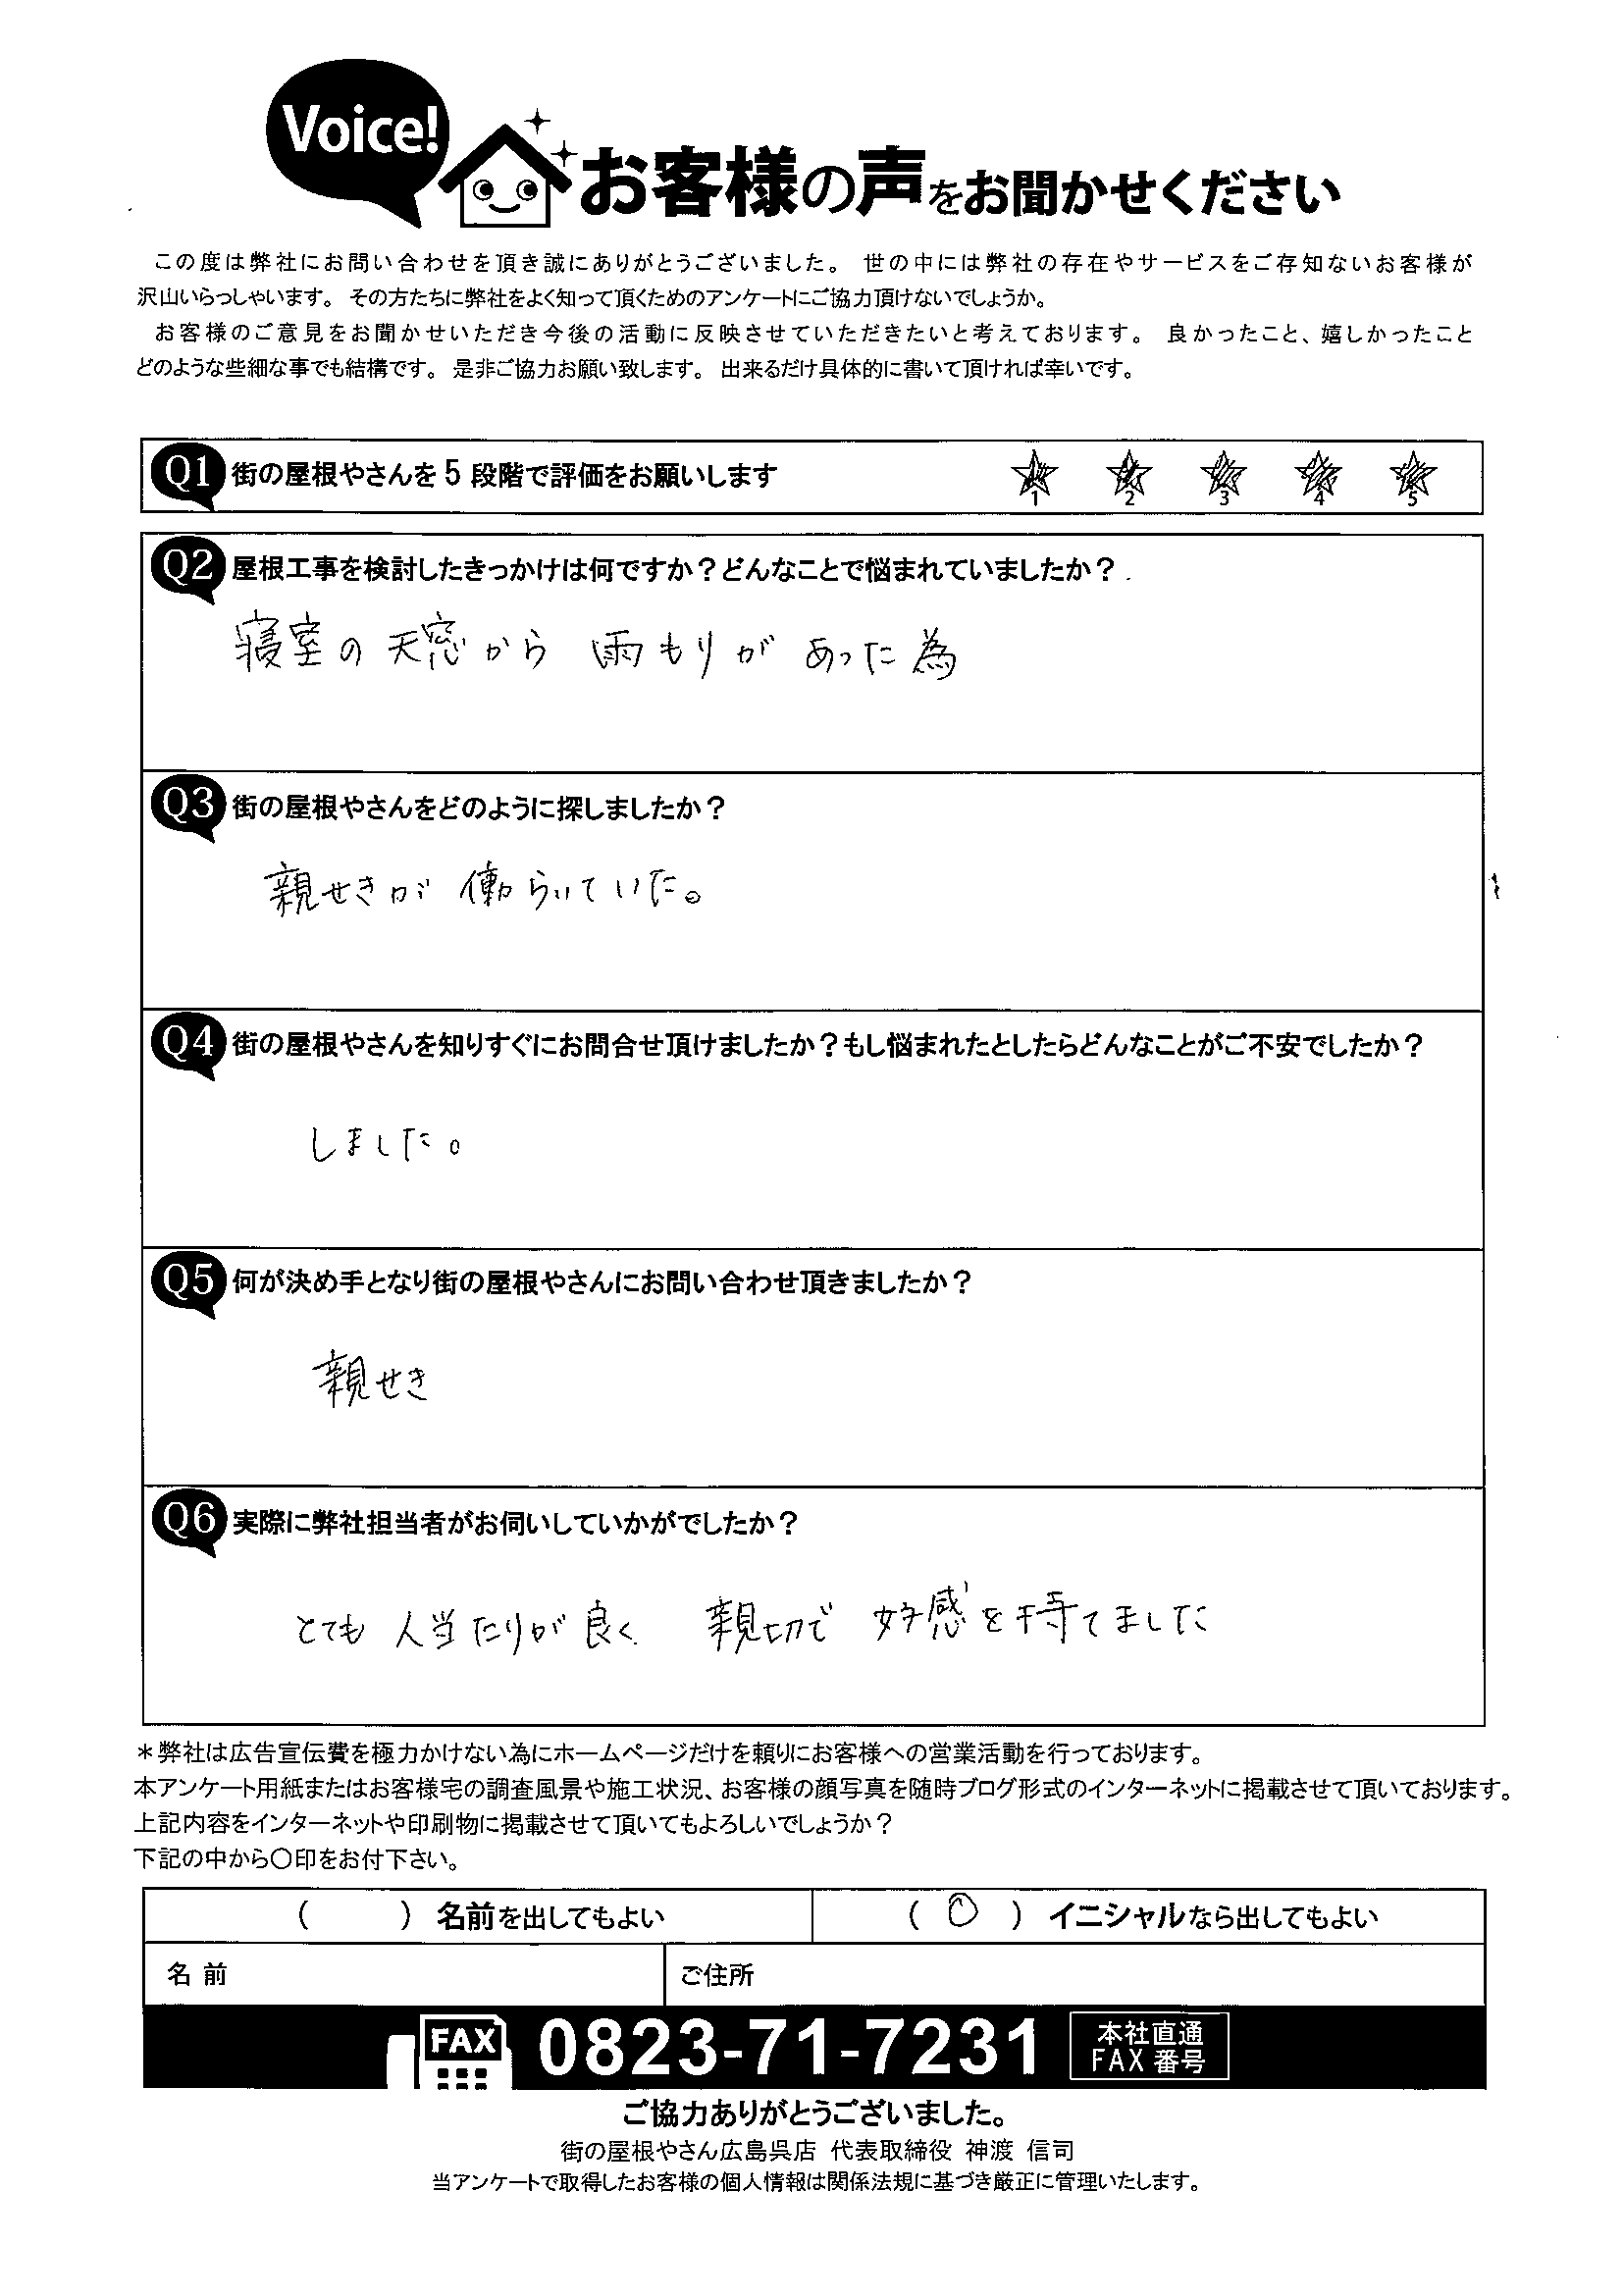 Voice!
お客様の声をお聞かせください
この度は弊社にお問い合わせを頂き誠にありがとうございました。 世の中には弊社の存在やサービスをご存知ないお客様が
沢山いらっしゃいます。 その方たちに弊社をよく知って頂くためのアンケートにご協力頂けないでしょうか。
お客様のご意見をお聞かせいただき今後の活動に反映させていただきたいと考えております。 良かったこと、嬉しかったこと
どのような些細な事でも結構です。 是非ご協力お願い致します。 出来るだけ具体的に書いて頂ければ幸いです。
Q1 街の屋根やさんを5段階で評価をお願いします 1 2 3 4 5
Q2 屋根工事を検討したきっかけは何ですか？どんなことで悩まれていましたか？
寝室の天窓から 雨もりが あった為
Q3 街の屋根やさんをどのように探しましたか？
親せきが 働らいていた。
Q4 街の屋根やさんを知りすぐにお問合せ頂けましたか？もし悩まれたとしたらどんなことがご不安でしたか？
しました。
Q5 何が決め手となり街の屋根やさんにお問い合わせ頂きましたか？
親せき
Q6 実際に弊社担当者がお伺いしていかがでしたか？
とても 人当たりが良く 親切で 好感を持てました
＊弊社は広告宣伝費を極力かけない為にホームページだけを頼りにお客様への営業活動を行っております。
本アンケート用紙またはお客様宅の調査風景や施工状況、お客様の顔写真を随時ブログ形式のインターネットに掲載させて頂いております。
上記内容をインターネットや印刷物に掲載させて頂いてもよろしいでしょうか？
下記の中から〇印をお付下さい。
（　　）名前を出してもよい （ 〇 ）イニシャルなら出してもよい
名 前 ご住所
FAX 0823-71-7231 本社直通
FAX 番号
ご協力ありがとうございました。
街の屋根やさん広島呉店 代表取締役 神渡 信司
当アンケートで取得したお客様の個人情報は関係法規に基づき厳正に管理いたします。